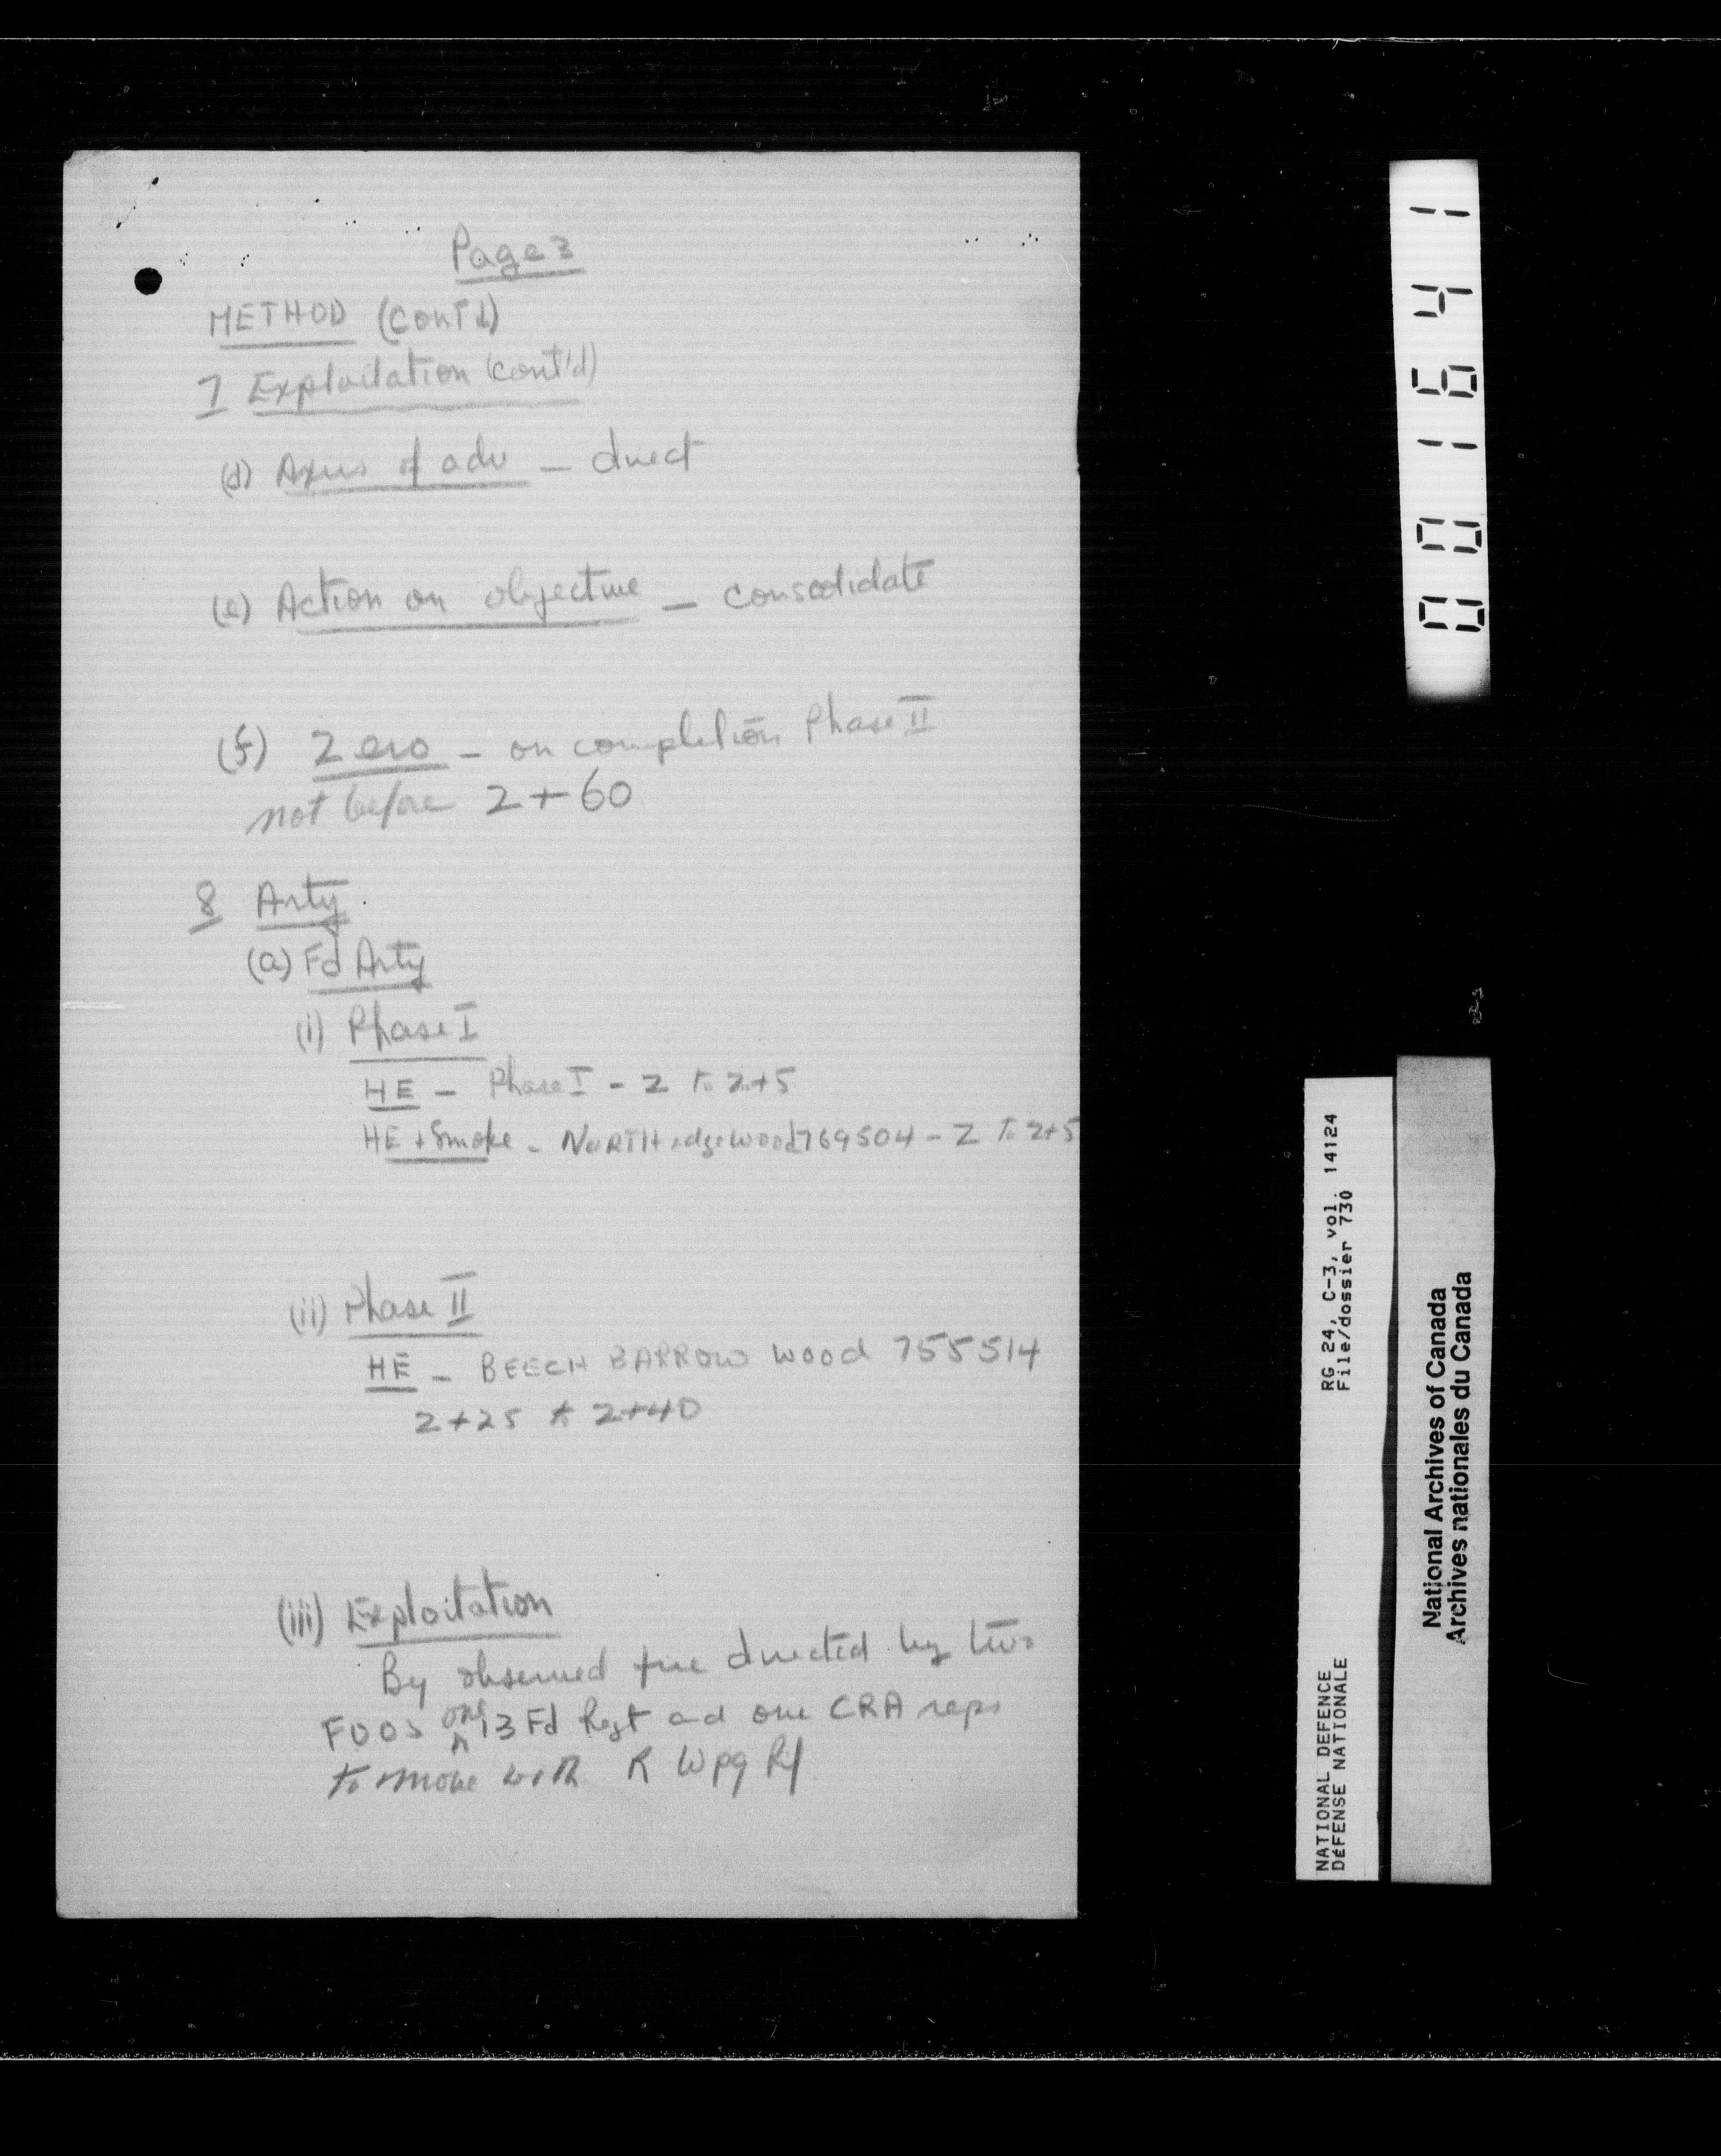 Page 3
METHOD (Cont'd)
7 Exploitation (cont'd)
(d) Axis of adv - direct
(e) Action on objective - consolidate
(f) Zero - on completion Phase II
not before Z+60
8 Arty.
(a) Fd Arty
(i) Phase I
HE - Phase I - Z to Z+5
HE + Smoke - NORTH edge wood 769504 - Z to Z+5
(ii) Phase II
HE - BEECH BARROW wood 755514
Z+25 to Z+40
(iii) Exploitation
By observed fire directed by two
FOOs one 13 Fd Regt and one CRA reps
to move with R Wpg Rif
001641
RG 24, C-3, vol. 14124
File/dossier 730
NATIONAL DEFENCE
DÉFENSE NATIONALE
National Archives of Canada
Archives nationales du Canada